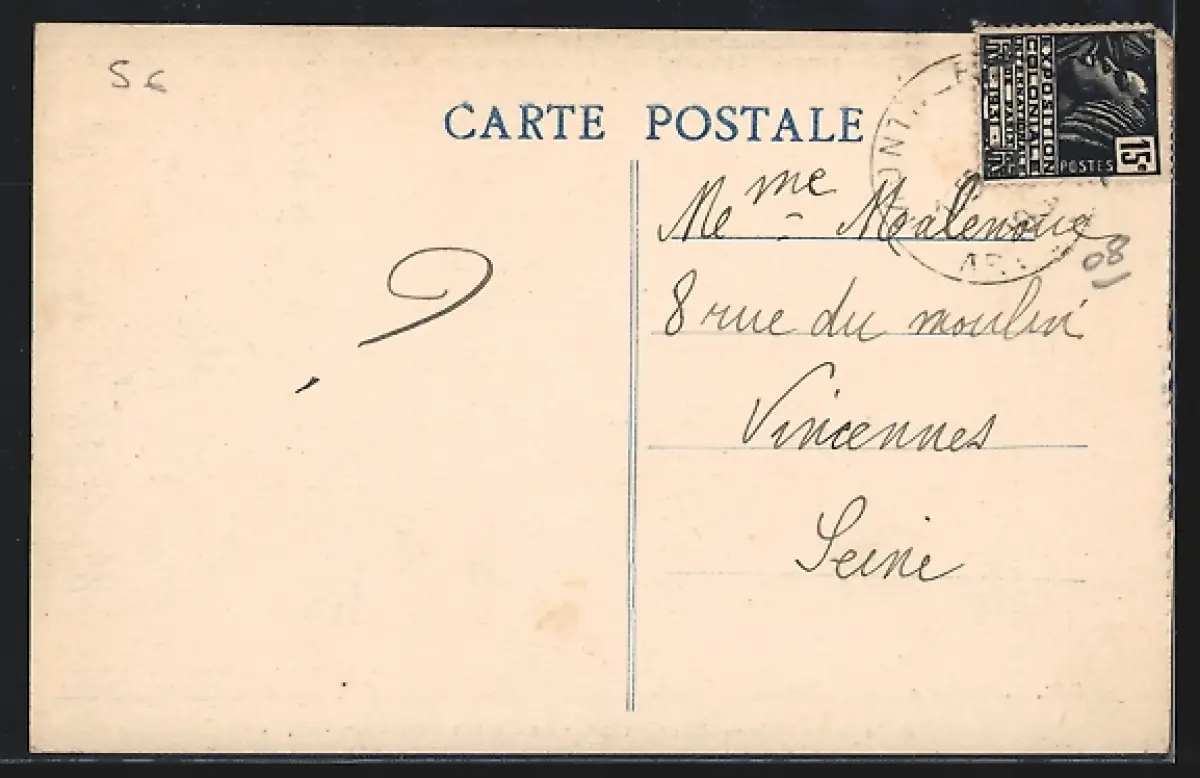 56
CARTE POSTALE
EXPOSITION
COLONIALE
INTERNATIONALE
DE PARIS
1931
POSTES
15c
Mme
8 rue du moulin
Vincennes
Seine
08